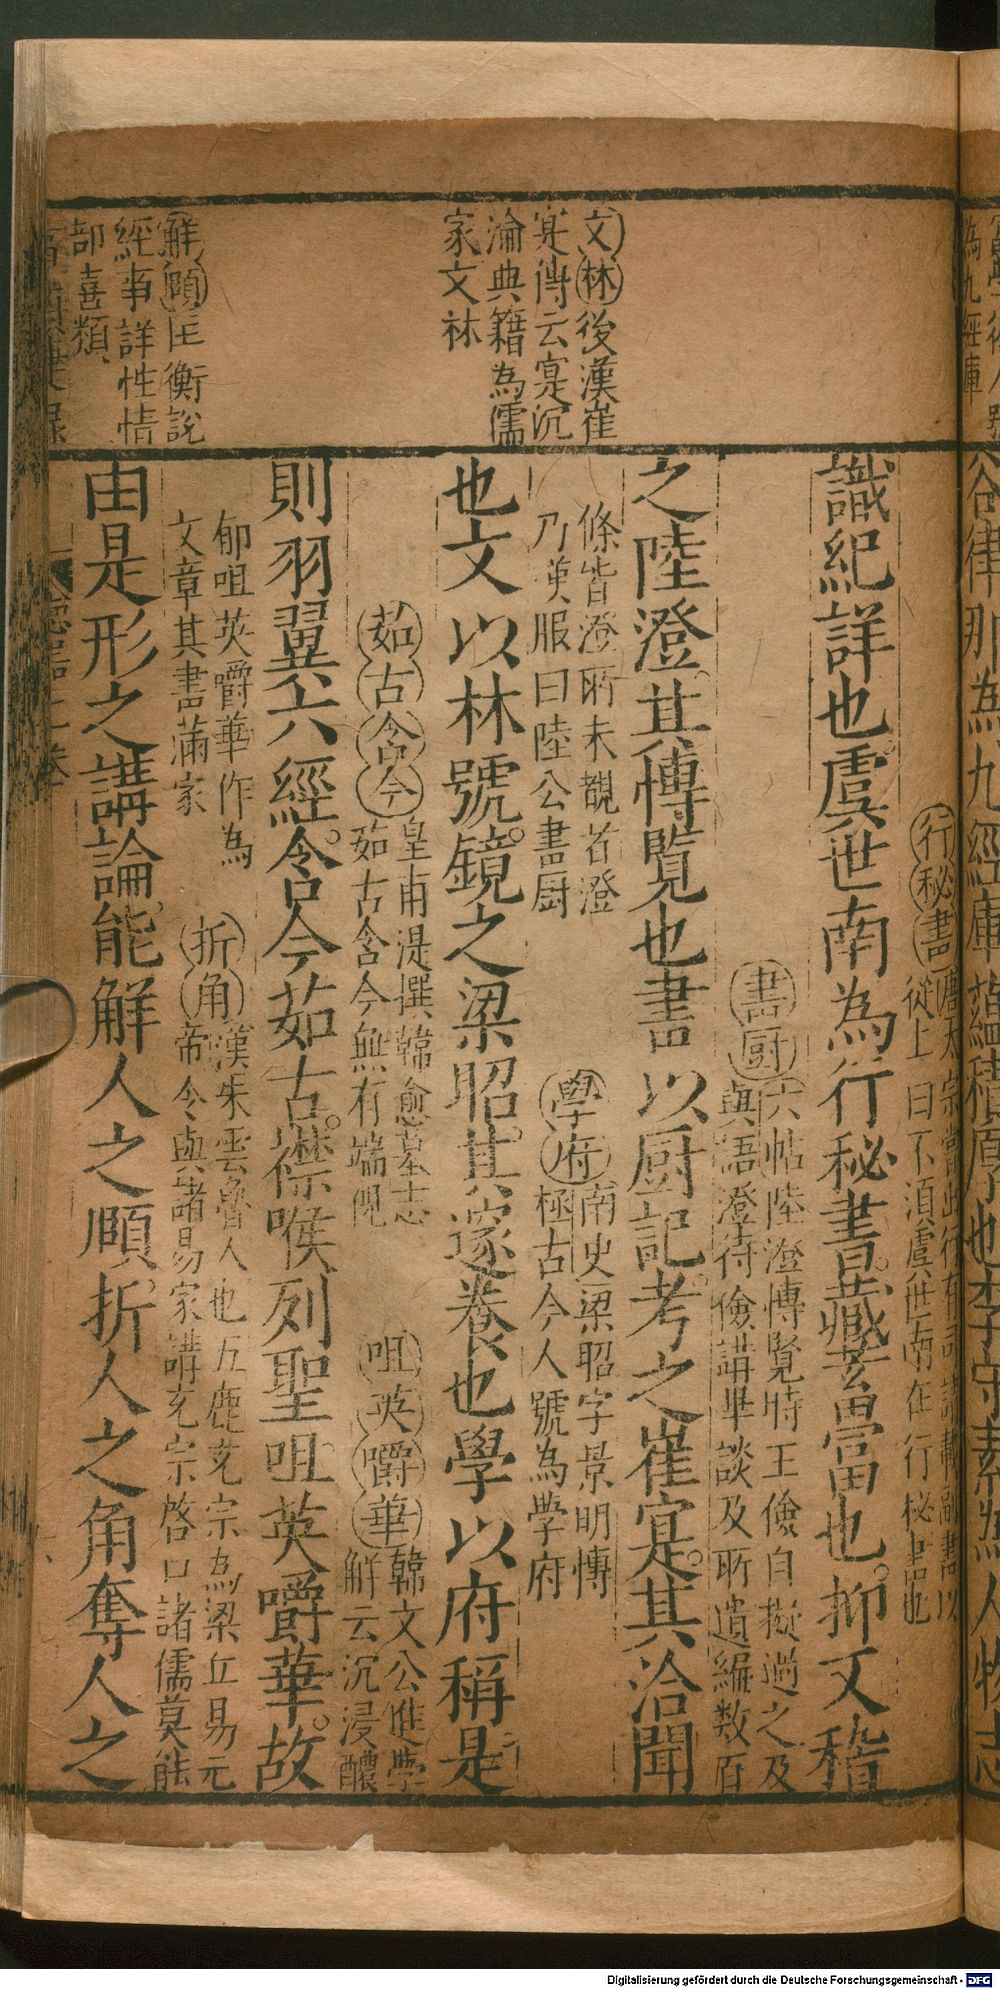 文林後漢崔
寔傳云寔沉
淪典籍為儒
家文林
解頤匡衡說
經事詳性情
部喜類
識紀詳也虞世南為行秘書藏蓄富也抑又稽
行秘書唐太宗嘗出行有司請載副書以
從上曰不須虞世南在行秘書也
書厨六帖陸澄博覧時王儉自擬過之及
與語澄待儉講畢談及所遺編数百
之陸澄其博覧也書以厨記考之崔寔其洽聞
條皆澄所未覩若澄
乃嘆服曰陸公書厨
學府南史梁昭字景明博
極古今人號為學府
也文以林號鏡之梁昭其邃養也學以府稱是
茹古含今皇甫湜撰韓愈墓志
茹古含今無有端倪
咀英嚼華韓文公進學
解云沉浸醲
則羽翼六經含今茹古襟喉列聖咀英嚼華故
郁咀英嚼華作為
文章其書滿家
折角漢朱雲魯人也五鹿充宗為梁丘易元
帝令與諸易家講充宗啓口諸儒莫能
由是形之講論能解人之頤折人之角奪人之
為九經庫
谷律那為九經庫蘊積厚也李守素為人物志
Digitalisierung gefördert durch die Deutsche Forschungsgemeinschaft - DFG